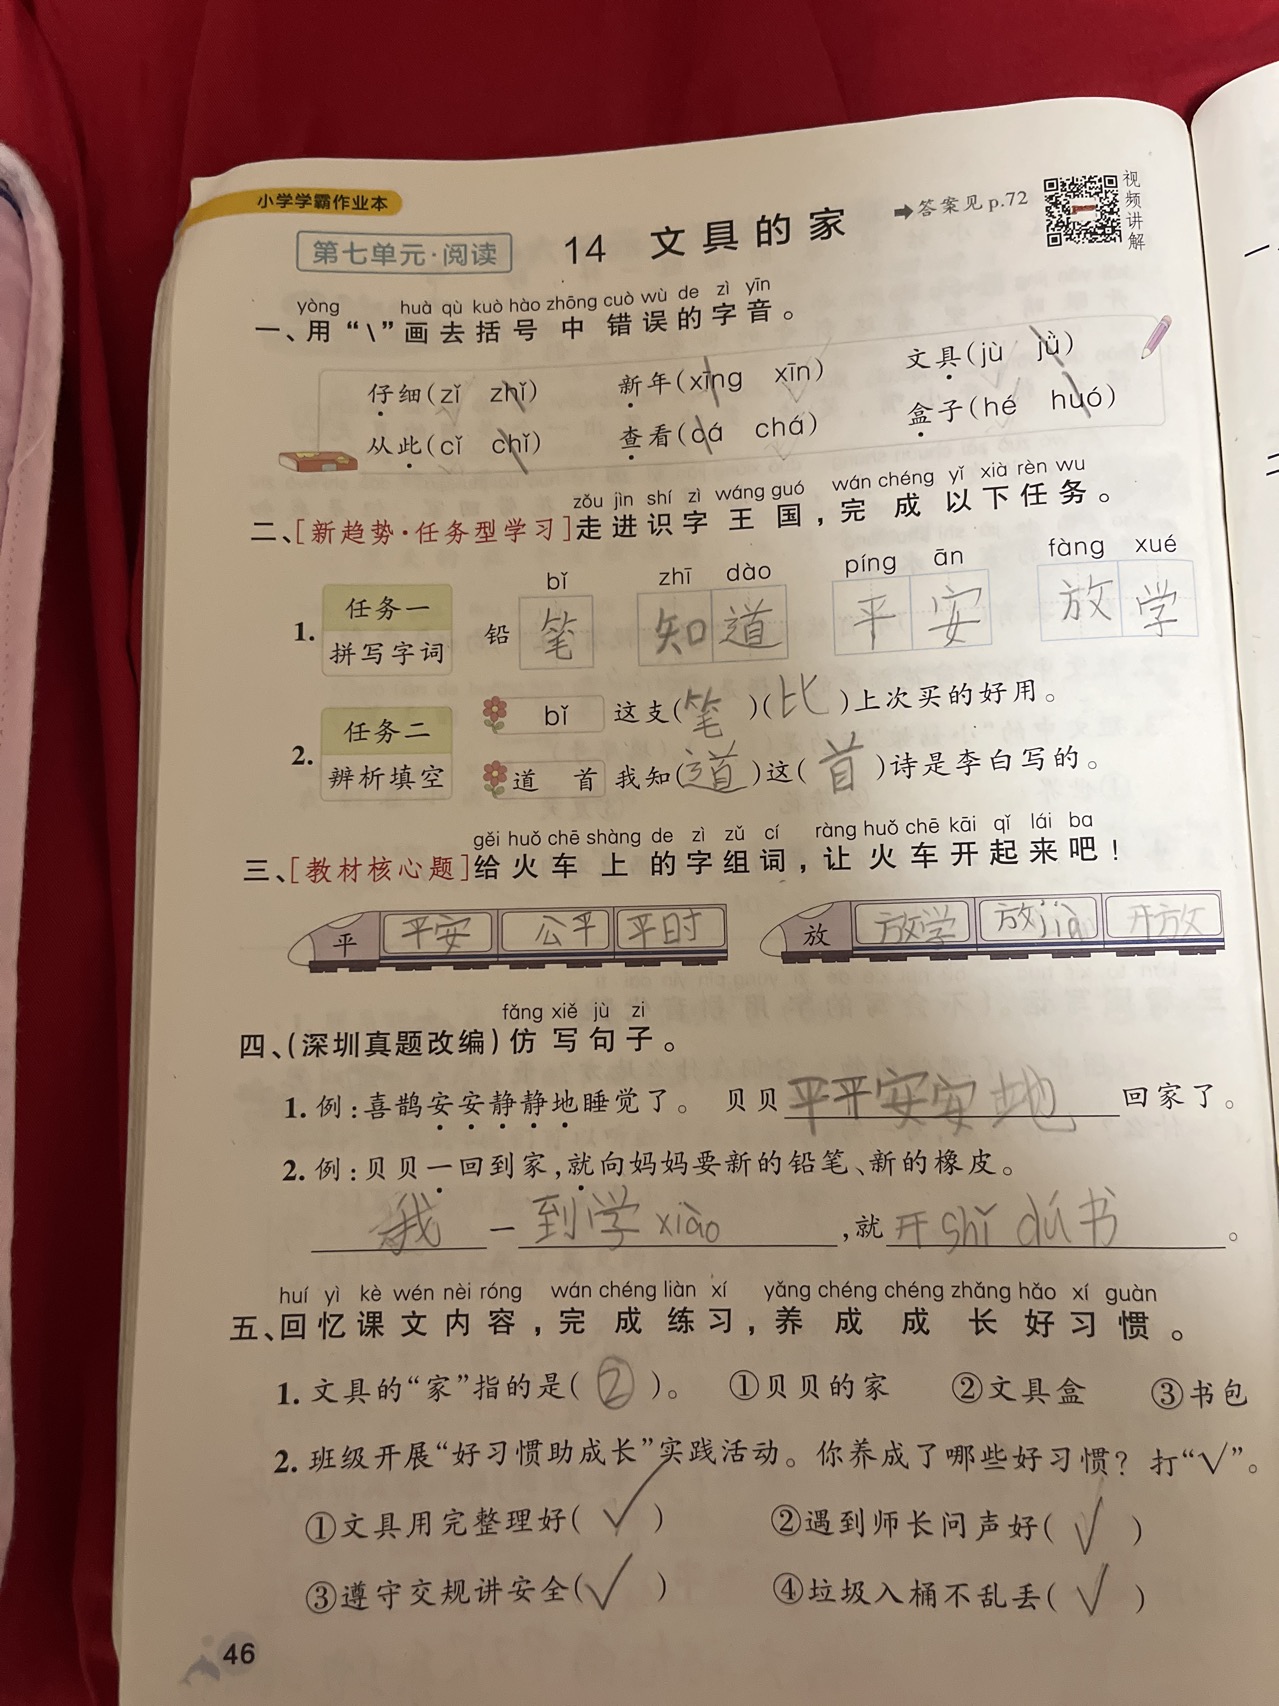 小学学霸作业本
第七单元·阅读 14 文具的家 ➡答案见p.72 视频讲解
yòng huà qù kuò hào zhōng cuò wù de zì yīn
一、用“\”画去括号中错误的字音。
仔细(zǐ zhǐ) 新年(xīng xīn) 文具(jù jǜ)
从此(cǐ chǐ) 查看(cá chá) 盒子(hé huó)
zǒu jìn shí zì wáng guó wán chéng yǐ xià rèn wu
二、[新趋势·任务型学习]走进识字王国，完成以下任务。
bǐ zhī dào píng ān fàng xué
1. 任务一 拼写字词 铅 笔 知道 平安 放学
2. 任务二 辨析填空 bǐ 这支(笔)(比)上次买的好用。
道 首 我知(道)这(首)诗是李白写的。
gěi huǒ chē shàng de zì zǔ cí ràng huǒ chē kāi qǐ lái ba
三、[教材核心题]给火车上的字组词，让火车开起来吧！
平 平安 公平 平时 放 放学 放jià 开放
fǎng xiě jù zi
四、(深圳真题改编)仿写句子。
1. 例：喜鹊安安静静地睡觉了。 贝贝平平安安地回家了。
2. 例：贝贝一回到家，就向妈妈要新的铅笔、新的橡皮。
我一到学xiào，就开shǐ dú书。
huí yì kè wén nèi róng wán chéng liàn xí yǎng chéng chéng zhǎng hǎo xí guàn
五、回忆课文内容，完成练习，养成成长好习惯。
1. 文具的“家”指的是(②)。 ①贝贝的家 ②文具盒 ③书包
2. 班级开展“好习惯助成长”实践活动。你养成了哪些好习惯？打“√”。
①文具用完整理好(√) ②遇到师长问声好(√)
③遵守交规讲安全(√) ④垃圾入桶不乱丢(√)
46